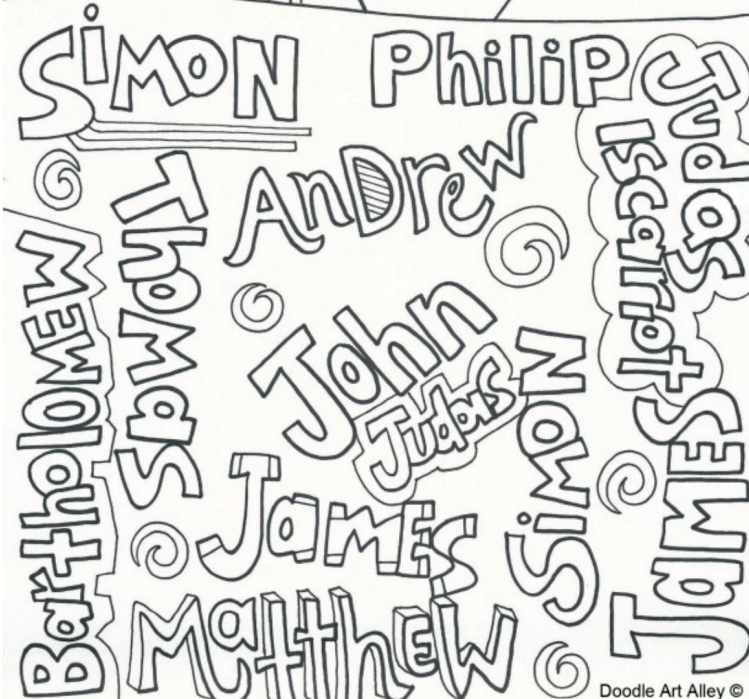 SiMoN
Philip
Judas
Iscariot
AnDrew
Thomas
Bartholomew
John
Judas
Simon
James
James
Matthew
Doodle Art Alley ©